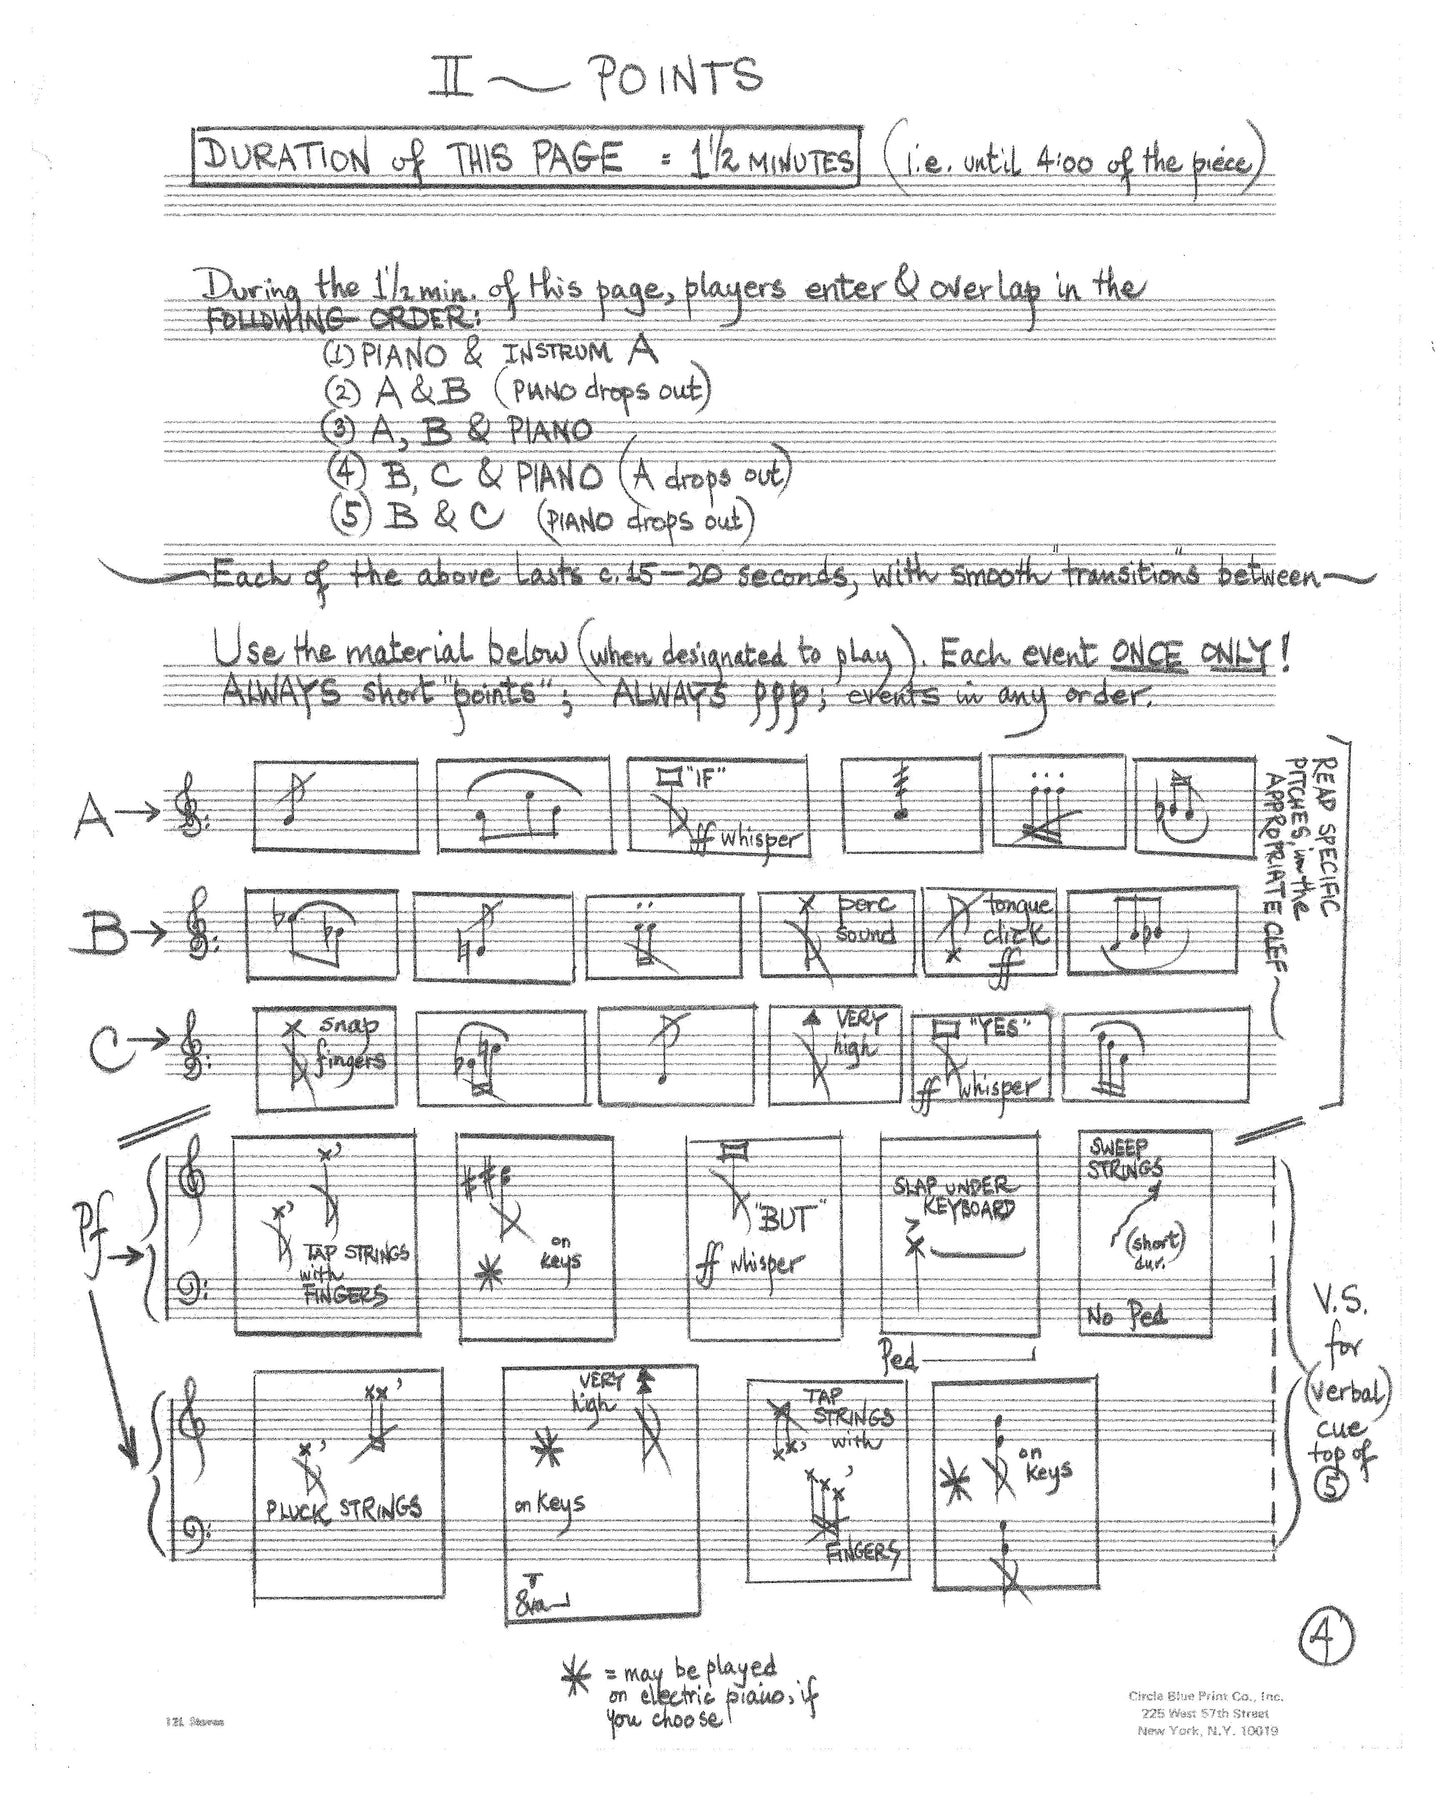 II ~ POINTS
DURATION of THIS PAGE = 1 1/2 MINUTES (i.e. until 4:00 of the piece)
During the 1 1/2 min. of this page, players enter & overlap in the
FOLLOWING ORDER:
(1) PIANO & INSTRUM A
(2) A & B (PIANO drops out)
(3) A, B & PIANO
(4) B, C & PIANO (A drops out)
(5) B & C (PIANO drops out)
Each of the above lasts c. 15—20 seconds, with smooth "transitions" between
Use the material below (when designated to play). Each event ONCE ONLY!
ALWAYS short "points"; ALWAYS ppp; events in any order.
A →
"IF"
ff whisper
READ SPECIFIC
PITCHES, in the
APPROPRIATE CLEF
B →
perc
sound
tongue
click
ff
C →
snap
fingers
VERY
high
"YES"
ff whisper
Pf →
TAP STRINGS
with
FINGERS
*
on
keys
"BUT"
ff whisper
SLAP UNDER
KEYBOARD
Ped
SWEEP
STRINGS
(short)
dur.
No Ped
PLUCK STRINGS
VERY
high
*
on keys
8va
TAP
STRINGS
with
FINGERS
*
on
keys
V.S.
for
(verbal)
cue
top of
5
4
* = may be played
on electric piano, if
you choose
12L Staves
Circle Blue Print Co., Inc.
225 West 57th Street
New York, N.Y. 10019